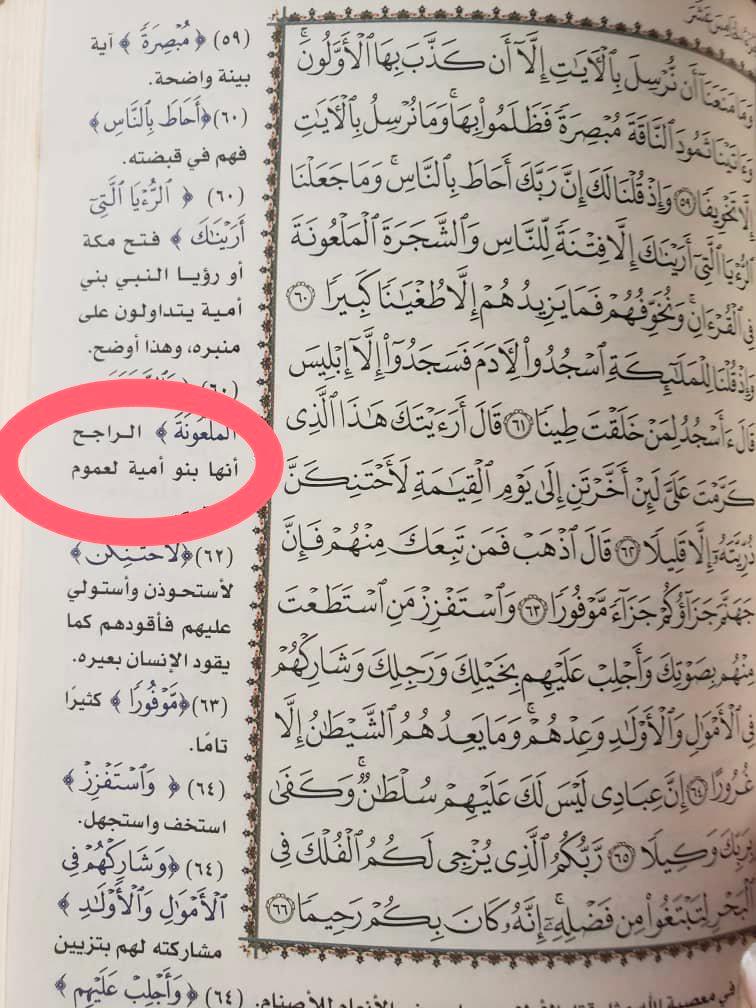 وَمَا مَنَعَنَآ أَن نُّرۡسِلَ بِٱلۡأٓيَٰتِ إِلَّآ أَن كَذَّبَ بِهَا ٱلۡأَوَّلُونَۚ
وَءَاتَيۡنَا ثَمُودَ ٱلنَّاقَةَ مُبۡصِرَةٗ فَظَلَمُواْ بِهَاۚ وَمَا نُرۡسِلُ بِٱلۡأٓيَٰتِ
إِلَّا تَخۡوِيفٗا ٥٩ وَإِذۡ قُلۡنَا لَكَ إِنَّ رَبَّكَ أَحَاطَ بِٱلنَّاسِۚ وَمَا جَعَلۡنَا
ٱلرُّءۡيَا ٱلَّتِيٓ أَرَيۡنَٰكَ إِلَّا فِتۡنَةٗ لِّلنَّاسِ وَٱلشَّجَرَةَ ٱلۡمَلۡعُونَةَ
فِي ٱلۡقُرۡءَانِۚ وَنُخَوِّفُهُمۡ فَمَا يَزِيدُهُمۡ إِلَّا طُغۡيَٰنٗا كَبِيرٗا ٦٠
وَإِذۡ قُلۡنَا لِلۡمَلَٰٓئِكَةِ ٱسۡجُدُواْ لِأٓدَمَ فَسَجَدُوٓاْ إِلَّآ إِبۡلِيسَ
قَالَ ءَأَسۡجُدُ لِمَنۡ خَلَقۡتَ طِينٗا ٦١ قَالَ أَرَءَيۡتَكَ هَٰذَا ٱلَّذِي
كَرَّمۡتَ عَلَيَّ لَئِنۡ أَخَّرۡتَنِ إِلَىٰ يَوۡمِ ٱلۡقِيَٰمَةِ لَأَحۡتَنِكَنَّ
ذُرِّيَّتَهُۥٓ إِلَّا قَلِيلٗا ٦٢ قَالَ ٱذۡهَبۡ فَمَن تَبِعَكَ مِنۡهُمۡ فَإِنَّ
جَهَنَّمَ جَزَآؤُكُمۡ جَزَآءٗ مَّوۡفُورٗا ٦٣ وَٱسۡتَفۡزِزۡ مَنِ ٱسۡتَطَعۡتَ
مِنۡهُم بِصَوۡتِكَ وَأَجۡلِبۡ عَلَيۡهِم بِخَيۡلِكَ وَرَجِلِكَ وَشَارِكۡهُمۡ
فِي ٱلۡأَمۡوَٰلِ وَٱلۡأَوۡلَٰدِ وَعِدۡهُمۡۚ وَمَا يَعِدُهُمُ ٱلشَّيۡطَٰنُ إِلَّا
غُرُورًا ٦٤ إِنَّ عِبَادِي لَيۡسَ لَكَ عَلَيۡهِمۡ سُلۡطَٰنٞۚ وَكَفَىٰ
بِرَبِّكَ وَكِيلٗا ٦٥ رَّبُّكُمُ ٱلَّذِي يُزۡجِي لَكُمُ ٱلۡفُلۡكَ فِي
ٱلۡبَحۡرِ لِتَبۡتَغُواْ مِن فَضۡلِهِۦٓۚ إِنَّهُۥ كَانَ بِكُمۡ رَحِيمٗا ٦٦
(٥٩) ﴿مُبۡصِرَةٗ﴾ آية
بينة واضحة.
(٦٠) ﴿أَحَاطَ بِٱلنَّاسِ﴾
فهم في قبضته.
(٦٠) ﴿ٱلرُّءۡيَا ٱلَّتِيٓ
أَرَيۡنَٰكَ﴾ فتح مكة
أو رؤيا النبي بني
أمية يتداولون على
منبره، وهذا أوضح.
(٦٠)
ٱلۡمَلۡعُونَةَ﴾ الراجح
أنها بنو أمية لعموم
(٦٢) ﴿لَأَحۡتَنِكَنَّ﴾
لأستحوذن وأستولي
عليهم فأقودهم كما
يقود الإنسان بعيره.
(٦٣) ﴿مَّوۡفُورٗا﴾ كثيرًا
تامًا.
(٦٤) ﴿وَٱسۡتَفۡزِزۡ﴾
استخف واستجهل.
(٦٤) ﴿وَشَارِكۡهُمۡ فِي
ٱلۡأَمۡوَٰلِ وَٱلۡأَوۡلَٰدِ﴾
مشاركته لهم بتزيين
(٦٤) ﴿وَأَجۡلِبۡ عَلَيۡهِم﴾